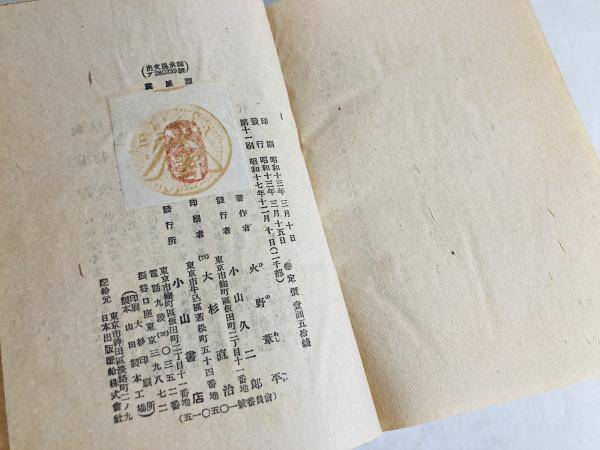 印刷 昭和十三年三月十日
發行 昭和十三年三月十五日
第十一刷 昭和十七年十二月十日(二千部)
定價 壹圓五拾錢
著作者 火野葦平
發行者 小山久二郎
東京市麴町區飯田町二丁目十一番地
印刷者 大杉直治
東京市牛込區若松町五十四番地
發行所 小山書店
東京市麴町區飯田町二丁目十一番地
電話九段(33)〇三五二番
振替口座東京三九八七二
(印刷 大杉印刷所)
(製本 山田製本工場)
東京市神田區淡路町二ノ九
配給元 日本出版配給株式會社